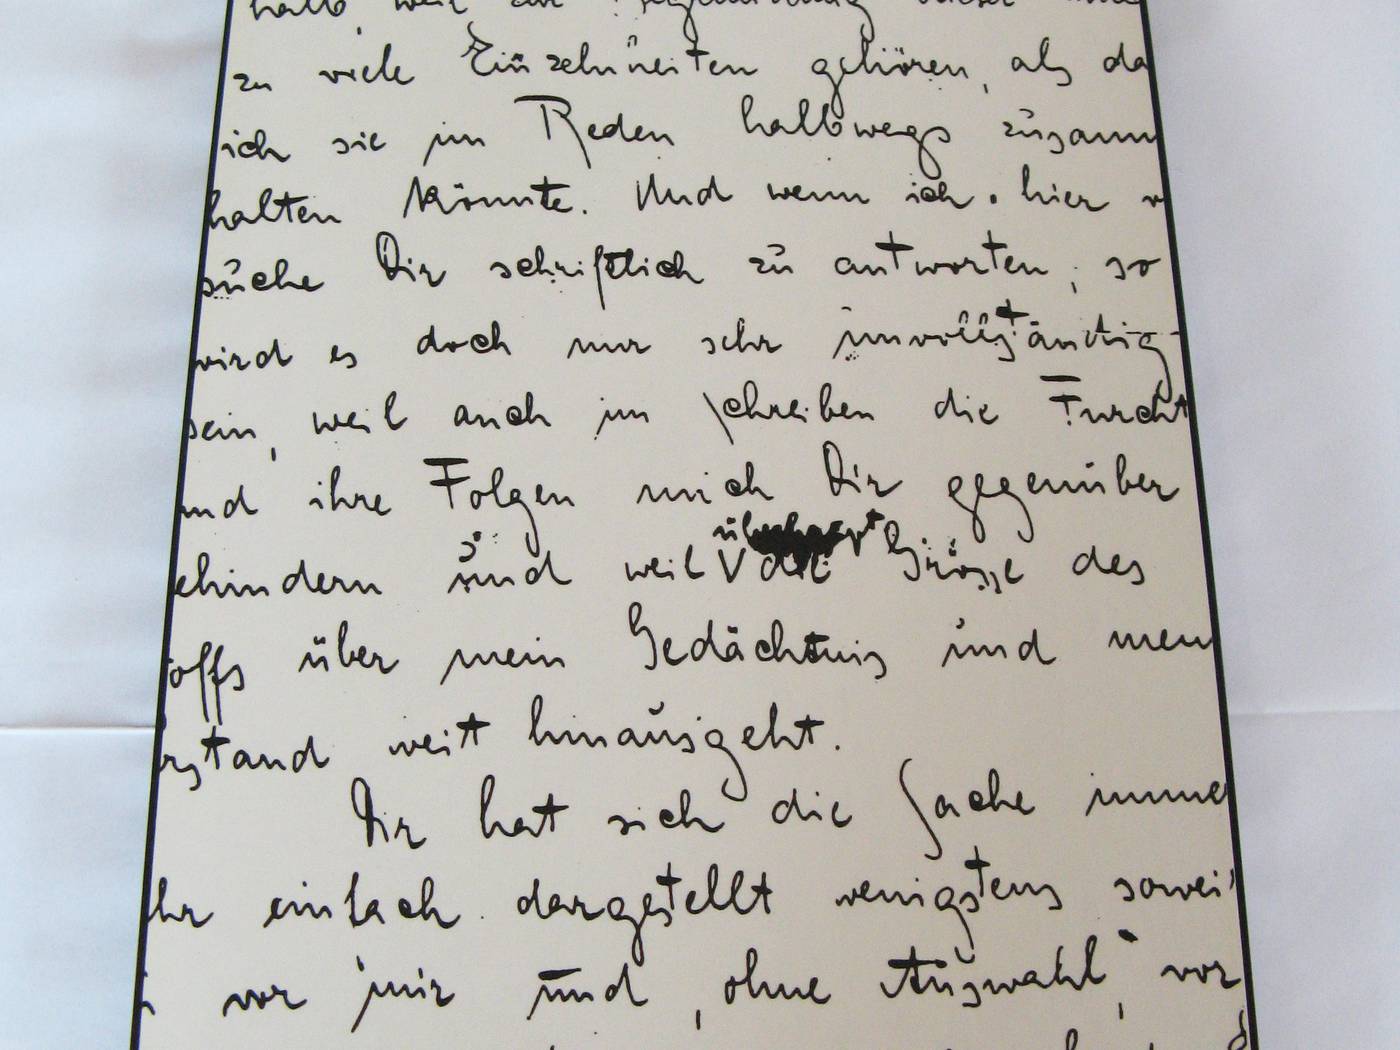 halb, weil zur Begründung dieser
zu viele Einzelnheiten gehören, als da
ich sie im Reden halbwegs zusamm
halten könnte. Und wenn ich hier v
suche Dir schriftlich zu antworten, so
wird es doch nur sehr unvollständig
sein, weil auch im Schreiben die Furcht
und ihre Folgen mich Dir gegenüber
ehindern und weil überhaupt die Grösse des
offs über mein Gedächtnis und mein
rstand weit hinausgeht.
Dir hat sich die Sache imme
hr einfach dargestellt wenigstens sowei
vor mir und, ohne Auswahl, vor